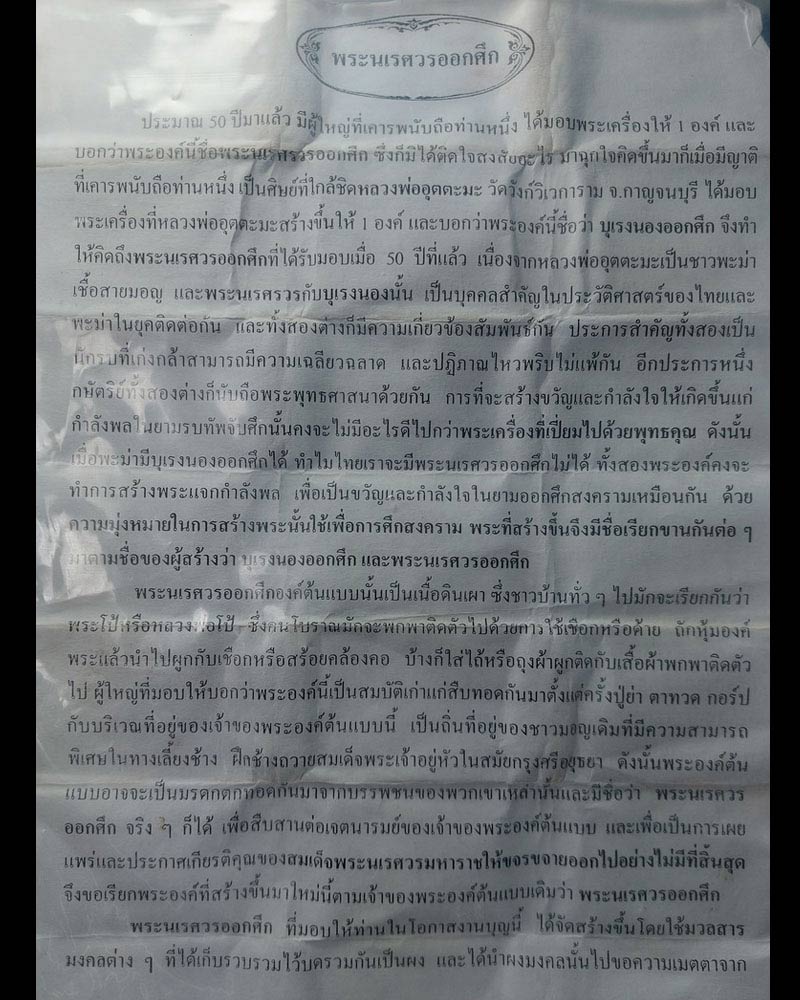 พระนเรศวรออกศึก
ประมาณ 50 ปีมาแล้ว มีผู้ใหญ่ที่เคารพนับถือท่านหนึ่ง ได้มอบพระเครื่องให้ 1 องค์ และ
บอกว่าพระองค์นี้ชื่อพระนเรศรวรออกศึก ซึ่งก็มิได้ติดใจสงสัยอะไร มาฉุกใจคิดขึ้นมาก็เมื่อมีญาติ
ที่เคารพนับถือท่านหนึ่ง เป็นศิษย์ที่ใกล้ชิดหลวงพ่ออุตตะมะ วัดวังก์วิเวการาม จ.กาญจนบุรี ได้มอบ
พระเครื่องที่หลวงพ่ออุตตะมะสร้างขึ้นให้ 1 องค์ และบอกว่าพระองค์นี้ชื่อว่า บุเรงนองออกศึก จึงทำ
ให้คิดถึงพระนเรศวรออกศึกที่ได้รับมอบเมื่อ 50 ปีที่แล้ว เนื่องจากหลวงพ่ออุตตะมะเป็นชาวพะม่า
เชื้อสายมอญ และพระนเรศรวรกับบุเรงนองนั้น เป็นบุคคลสำคัญในประวัติศาสตร์ของไทยและ
พะม่าในยุคติดต่อกัน และทั้งสองต่างก็มีความเกี่ยวข้องสัมพันธ์กัน ประการสำคัญทั้งสองเป็น
นักรบที่เก่งกล้าสามารถมีความเฉลียวฉลาด และปฏิภาณไหวพริบไม่แพ้กัน อีกประการหนึ่ง
กษัตริย์ทั้งสองต่างก็นับถือพระพุทธศาสนาด้วยกัน การที่จะสร้างขวัญและกำลังใจให้เกิดขึ้นแก่
กำลังพลในยามรบทัพจับศึกนั้นคงจะไม่มีอะไรดีไปกว่าพระเครื่องที่เปี่ยมไปด้วยพุทธคุณ ดังนั้น
เมื่อพะม่ามีบุเรงนองออกศึกได้ ทำไมไทยเราจะมีพระนเรศวรออกศึกไม่ได้ ทั้งสองพระองค์คงจะ
ทำการสร้างพระแจกกำลังพล เพื่อเป็นขวัญและกำลังใจในยามออกศึกสงครามเหมือนกัน ด้วย
ความมุ่งหมายในการสร้างพระนั้นใช้เพื่อการศึกสงคราม พระที่สร้างขึ้นจึงมีชื่อเรียกขานกันต่อ ๆ
มาตามชื่อของผู้สร้างว่า บุเรงนองออกศึก และพระนเรศวรออกศึก
พระนเรศวรออกศึกองค์ต้นแบบนั้นเป็นเนื้อดินเผา ซึ่งชาวบ้านทั่ว ๆ ไปมักจะเรียกกันว่า
พระโป้หรือหลวงพ่อโป้ ซึ่งคนโบราณมักจะพกพาติดตัวไปด้วยการใช้เชือกหรือด้าย ถักหุ้มองค์
พระแล้วนำไปผูกกับเชือกหรือสร้อยคล้องคอ บ้างก็ใส่ไถ้หรือถุงผ้าผูกติดกับเสื้อผ้าพกพาติดตัว
ไป ผู้ใหญ่ที่มอบให้บอกว่าพระองค์นี้เป็นสมบัติเก่าแก่สืบทอดกันมาตั้งแต่ครั้งปู่ย่า ตาทวด กอร์ป
กับบริเวณที่อยู่ของเจ้าของพระองค์ต้นแบบนี้ เป็นถิ่นที่อยู่ของชาวมอญเดิมที่มีความสามารถ
พิเศษในทางเลี้ยงช้าง ฝึกช้างถวายสมเด็จพระเจ้าอยู่หัวในสมัยกรุงศรีอยุธยา ดังนั้นพระองค์ต้น
แบบอาจจะเป็นมรดกตกทอดกันมาจากบรรพชนของพวกเขาเหล่านั้นและมีชื่อว่า พระนเรศวร
ออกศึก จริง ๆ ก็ได้ เพื่อสืบสานต่อเจตนารมย์ของเจ้าของพระองค์ต้นแบบ และเพื่อเป็นการเผย
แพร่และประกาศเกียรติคุณของสมเด็จพระนเรศวรมหาราชให้ขจรขจายออกไปอย่างไม่มีที่สิ้นสุด
จึงขอเรียกพระองค์ที่สร้างขึ้นมาใหม่นี้ตามเจ้าของพระองค์ต้นแบบเดิมว่า พระนเรศวรออกศึก
พระนเรศวรออกศึก ที่มอบให้ท่านในโอกาสงานบุญนี้ ได้จัดสร้างขึ้นโดยใช้มวลสาร
มงคลต่าง ๆ ที่ได้เก็บรวบรวมไว้บดรวมกันเป็นผง และได้นำผงมงคลนั้นไปขอความเมตตาจาก